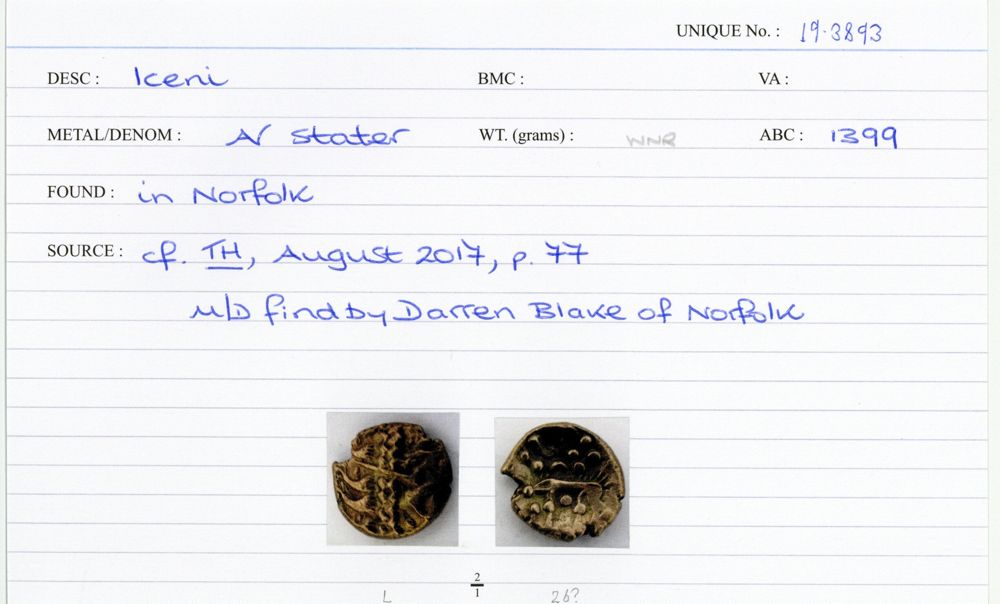 UNIQUE No. : 19.3893
DESC : Iceni BMC : VA :
METAL/DENOM : AV stater WT. (grams) : WNR ABC : 1399
FOUND : in Norfolk
SOURCE : cf. TH, August 2017, p. 77
M/D find by Darren Blake of Norfolk
2
1
L 26?